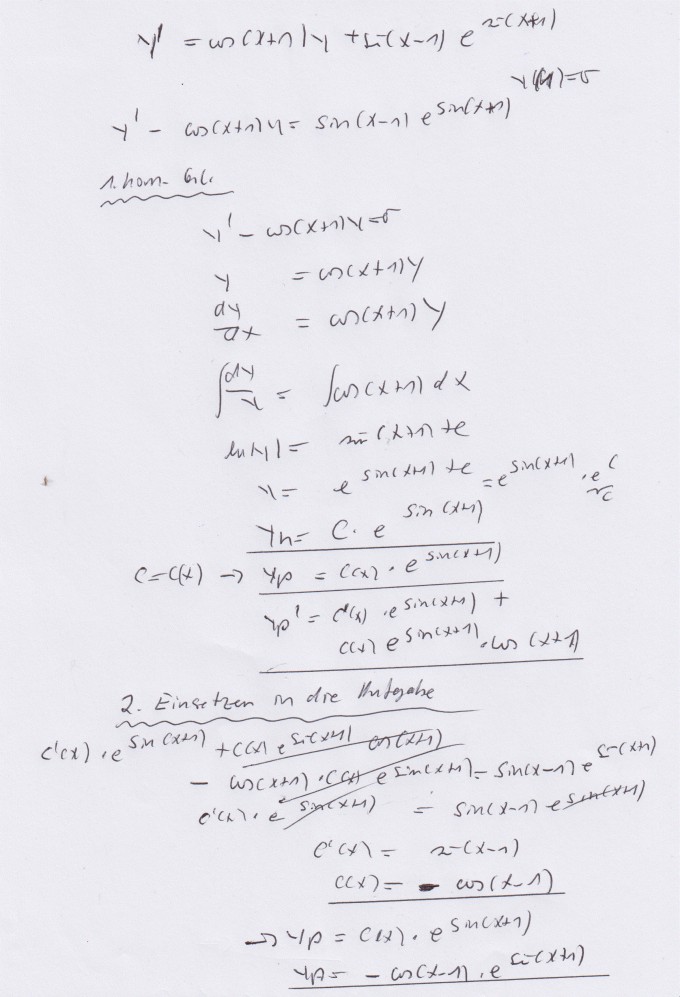 y' = cos(x+1)y + sin(x-1) e^{sin(x+1)}
y' - cos(x+1)y = sin(x-1) e^{sin(x+1)}
1. hom. Gl.
y' - cos(x+1)y=0
y = cos(x+1)y
dy/dx = cos(x+1)y
∫dy/y = ∫cos(x+1) dx
ln|y| = sin(x+1)+c
y = e^{sin(x+1)+c} = e^{sin(x+1)} · e^c
yh = C · e^{sin(x+1)}
C=C(x) → yp = C(x) · e^{sin(x+1)}
yp' = C'(x) · e^{sin(x+1)} +
C(x) e^{sin(x+1)} · cos(x+1)
2. Einsetzen in die Aufgabe
C'(x) · e^{sin(x+1)} + C(x) e^{sin(x+1)} cos(x+1)
- cos(x+1) · C(x) e^{sin(x+1)} = sin(x-1) e^{sin(x+1)}
C'(x) · e^{sin(x+1)} = sin(x-1) e^{sin(x+1)}
C'(x) = sin(x-1)
C(x) = - cos(x-1)
→ yp = C(x) · e^{sin(x+1)}
yp = - cos(x-1) · e^{sin(x+1)}